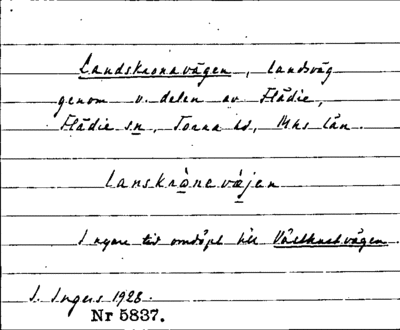 Landskronavägen, landsväg
genom v. delen av Flädie,
Flädie sn, Torna hd, Mhs län.
lanskrånevæjen
I nyare tid omdöpt till Västkustvägen.
I. Ingers 1928.
Nr 5837.